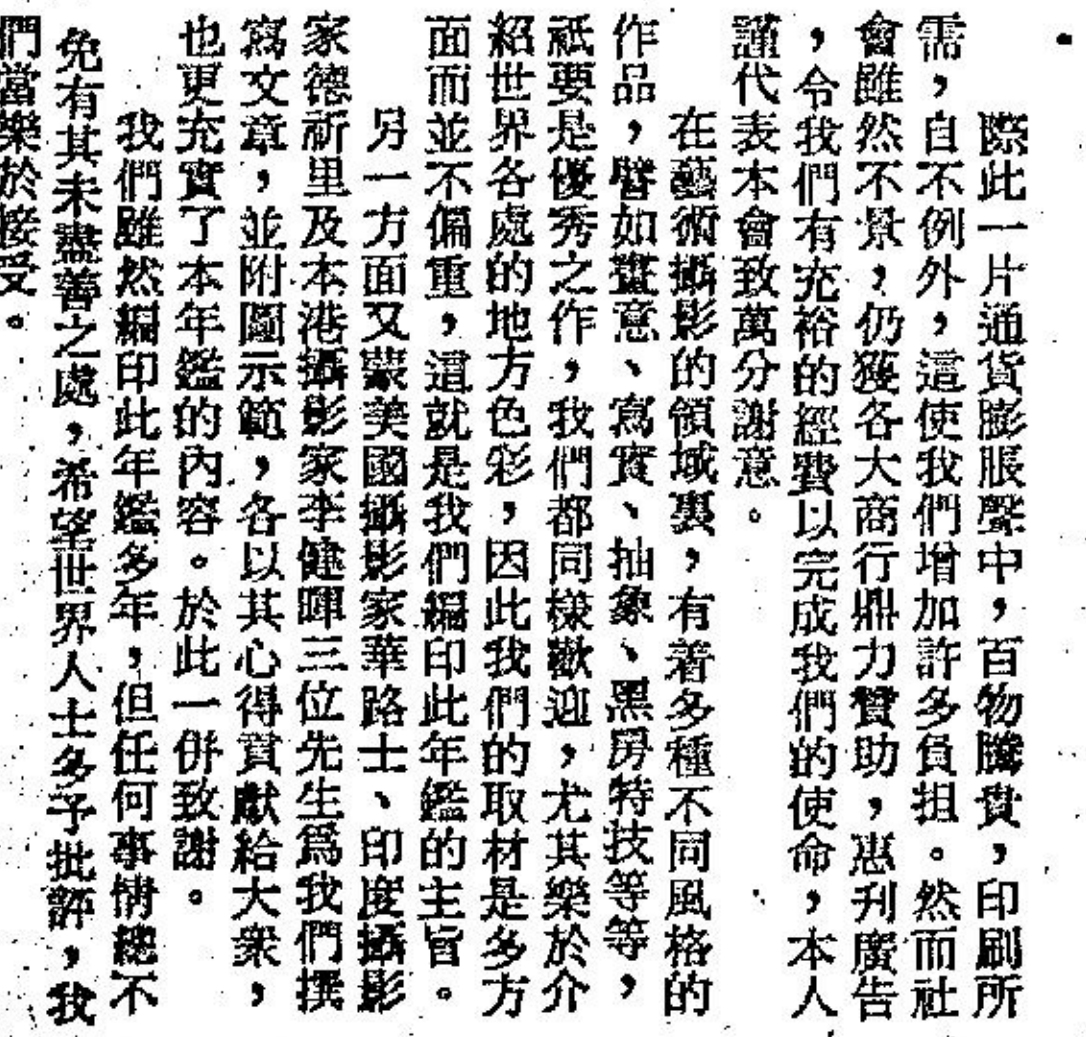 際此一片通貨膨脹聲中，百物騰貴，印刷所
需，自不例外，這使我們增加許多負担。然而社
會雖然不景，仍獲各大商行鼎力贊助，惠刋廣告
，令我們有充裕的經費以完成我們的使命，本人
謹代表本會致萬分謝意。
在藝術攝影的領域裏，有着多種不同風格的
作品，譬如畫意、寫實、抽象、黑房特技等等，
祇要是優秀之作，我們都同樣歡迎，尤其樂於介
紹世界各處的地方色彩，因此我們的取材是多方
面而並不偏重，這就是我們編印此年鑑的主旨。
另一方面又蒙美國攝影家華路士、印度攝影
家德祈里及本港攝影家李健暉三位先生爲我們撰
寫文章，並附圖示範，各以其心得貢獻給大衆，
也更充實了本年鑑的內容。於此一併致謝。
我們雖然編印此年鑑多年，但任何事情總不
免有其未盡善之處，希望世界人士多予批評，我
們當樂於接受。